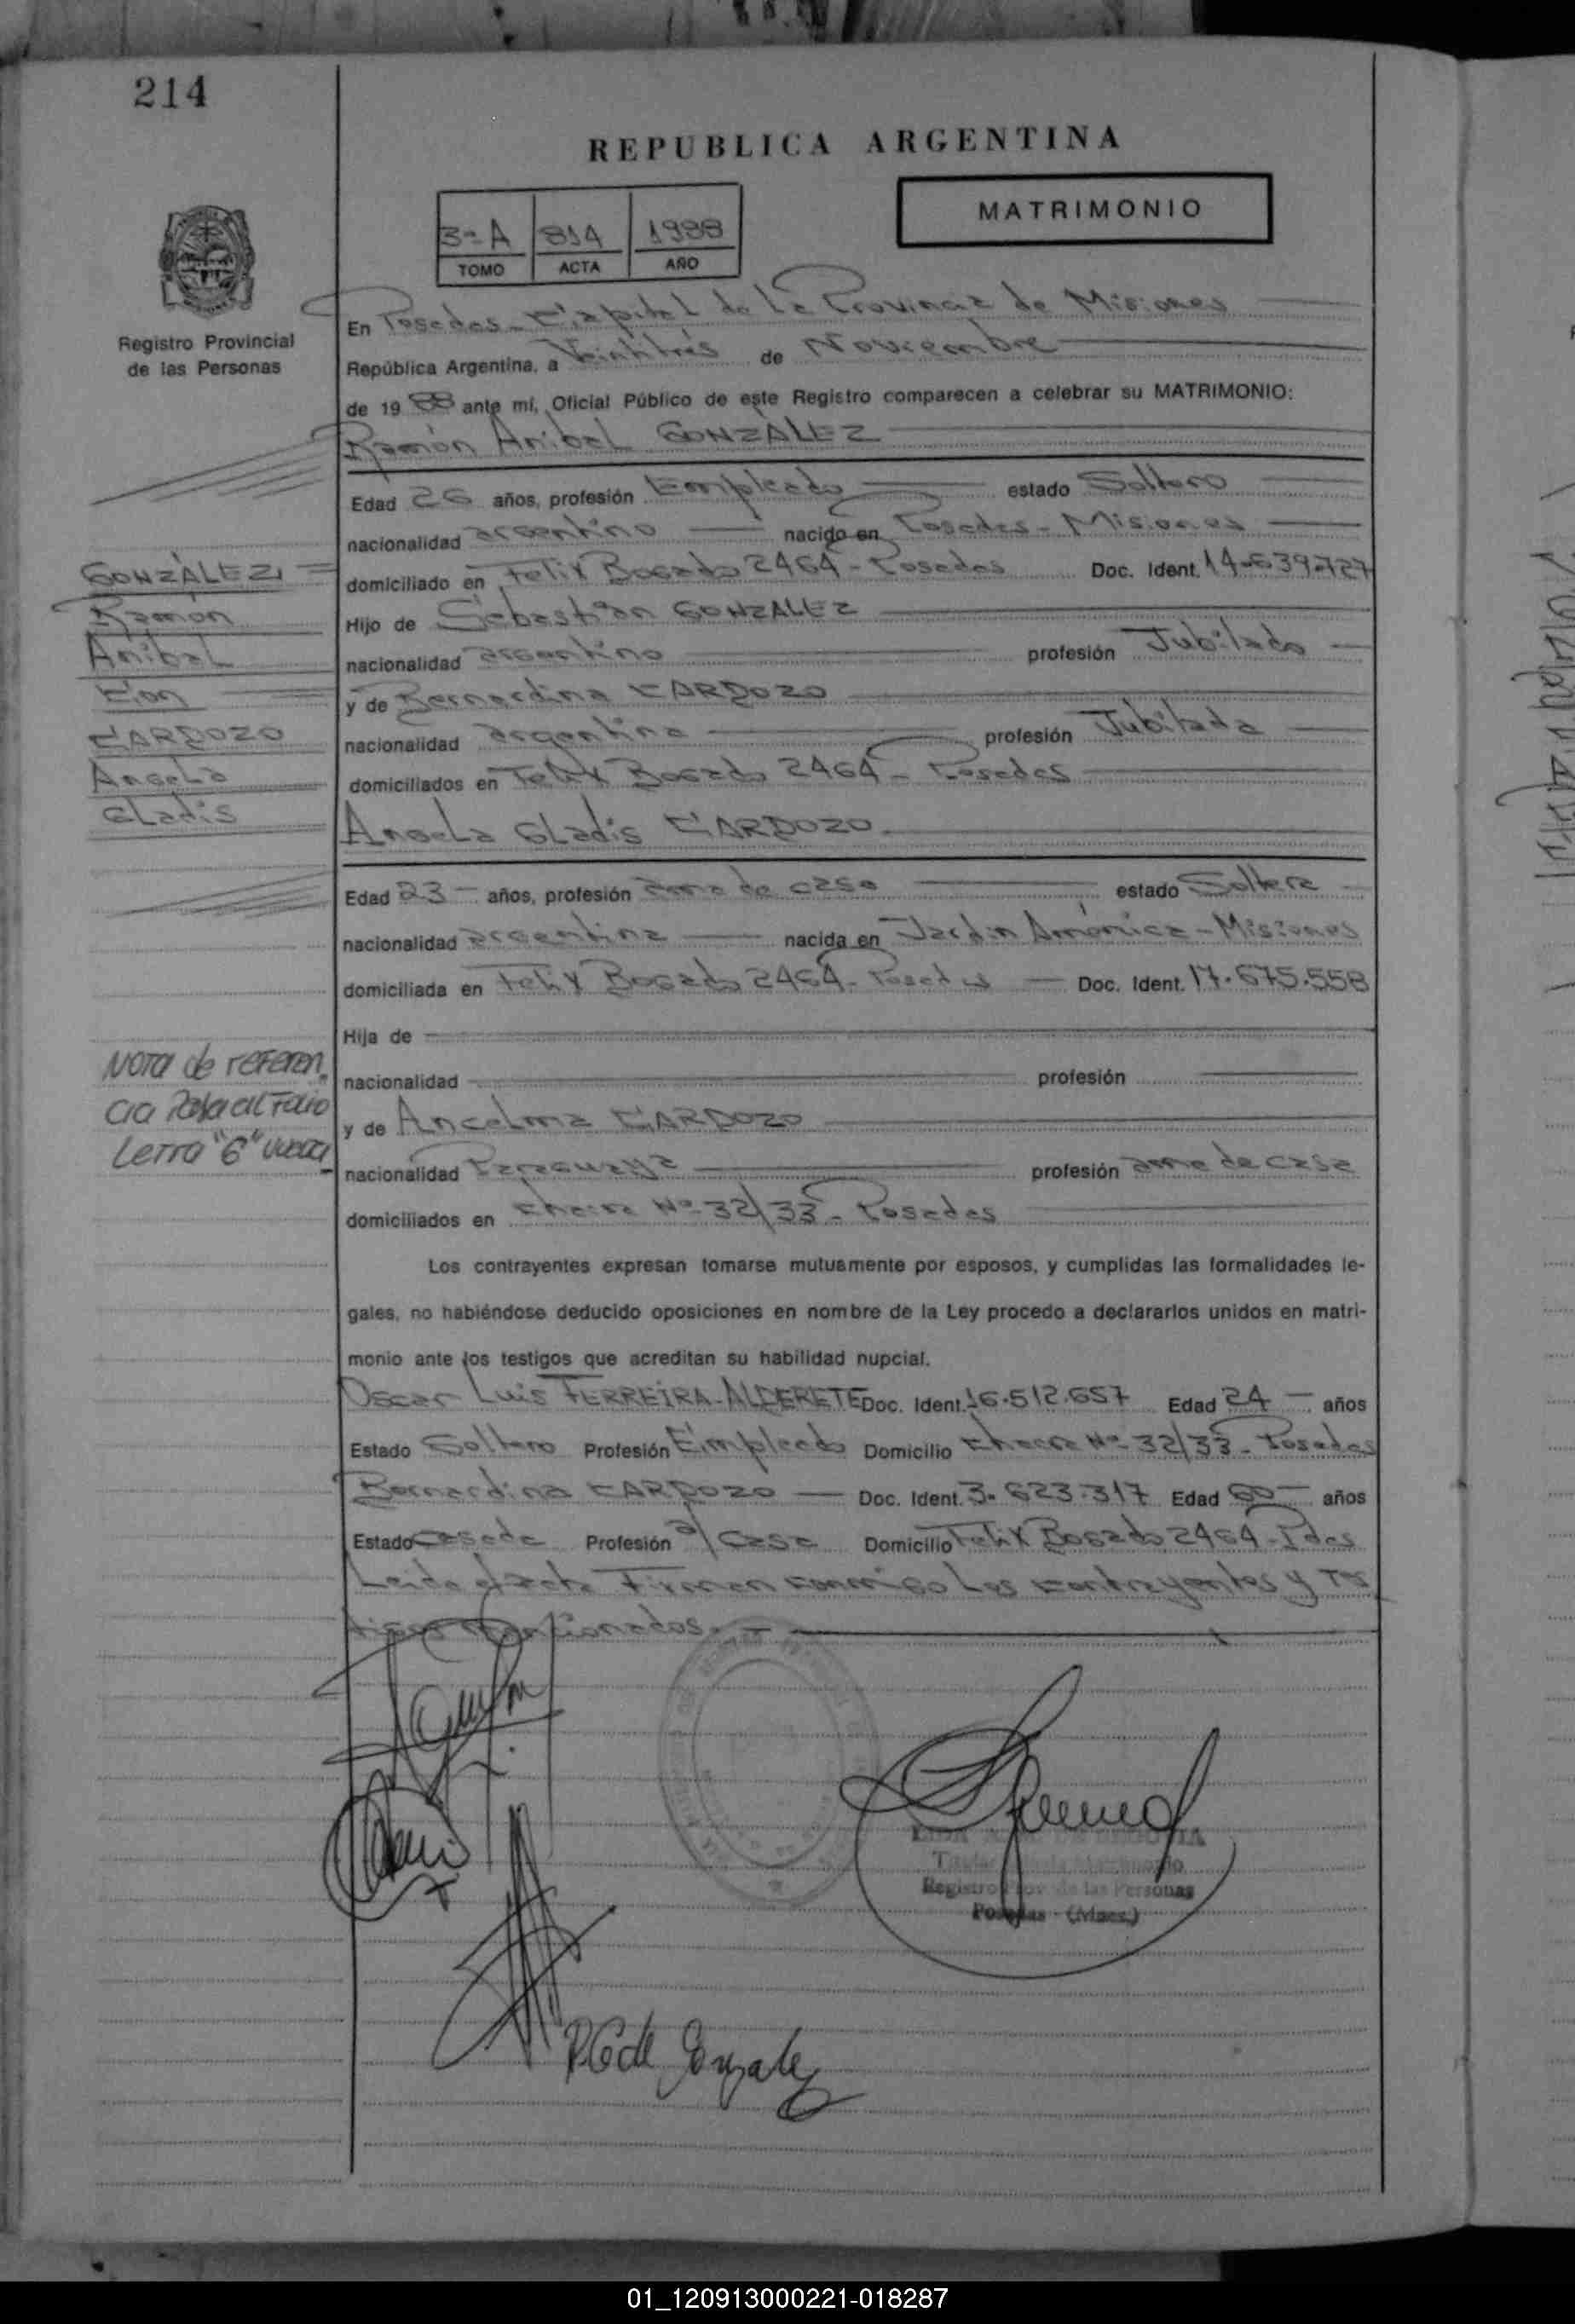 214
REPUBLICA ARGENTINA
MATRIMONIO
3ª A 814 1988
TOMO ACTA AÑO
Registro Provincial
de las Personas
En Posadas - Capital de la Provincia de Misiones
República Argentina, a Veintitrés de Noviembre
de 1988 ante mí, Oficial Público de este Registro comparecen a celebrar su MATRIMONIO:
Ramón Anibal GONZÁLEZ
Edad 26 años, profesión Empleado estado Soltero
nacionalidad argentino nacido en Posadas - Misiones
domiciliado en Felix Bogado 2464 - Posadas Doc. Ident. 14.639.727
Hijo de Sebastián GONZALEZ
nacionalidad argentino profesión Jubilado
y de Bernardina CARDOZO
nacionalidad argentina profesión Jubilada
domiciliados en Felix Bogado 2464 - Posadas
Angela Gladis CARDOZO
GONZÁLEZ
Ramón
Anibal
Con
CARDOZO
Angela
Gladis
Edad 23 años, profesión ama de casa estado Soltera
nacionalidad argentina nacida en Jardin América - Misiones
domiciliada en Felix Bogado 2464 - Posadas Doc. Ident. 17.675.558
Hija de
nacionalidad profesión
y de Ancelma CARDOZO
nacionalidad Paraguaya profesión ama de casa
domiciliados en Chacra Nº 32/33 - Posadas
NOTA de referen
cia Pasa al Folio
Letra "G" vuelta
Los contrayentes expresan tomarse mutuamente por esposos, y cumplidas las formalidades le-
gales, no habiéndose deducido oposiciones en nombre de la Ley procedo a declararlos unidos en matri-
monio ante los testigos que acreditan su habilidad nupcial.
Oscar Luis FERREIRA-ALDERETE Doc. Ident. 16.512.657 Edad 24 años
Estado Soltero Profesión Empleado Domicilio Chacra Nº 32/33 - Posadas
Bernardina CARDOZO Doc. Ident. 3.623.317 Edad 60 años
Estado Casada Profesión a/casa Domicilio Felix Bogado 2464 - Pdas
Leida el acta Firman conmigo los contrayentes y tes
tigos mencionados.
Registro Prov. de las Personas
Posadas - (Mnes.)
P.C de Gonzalez
01_120913000221-018287